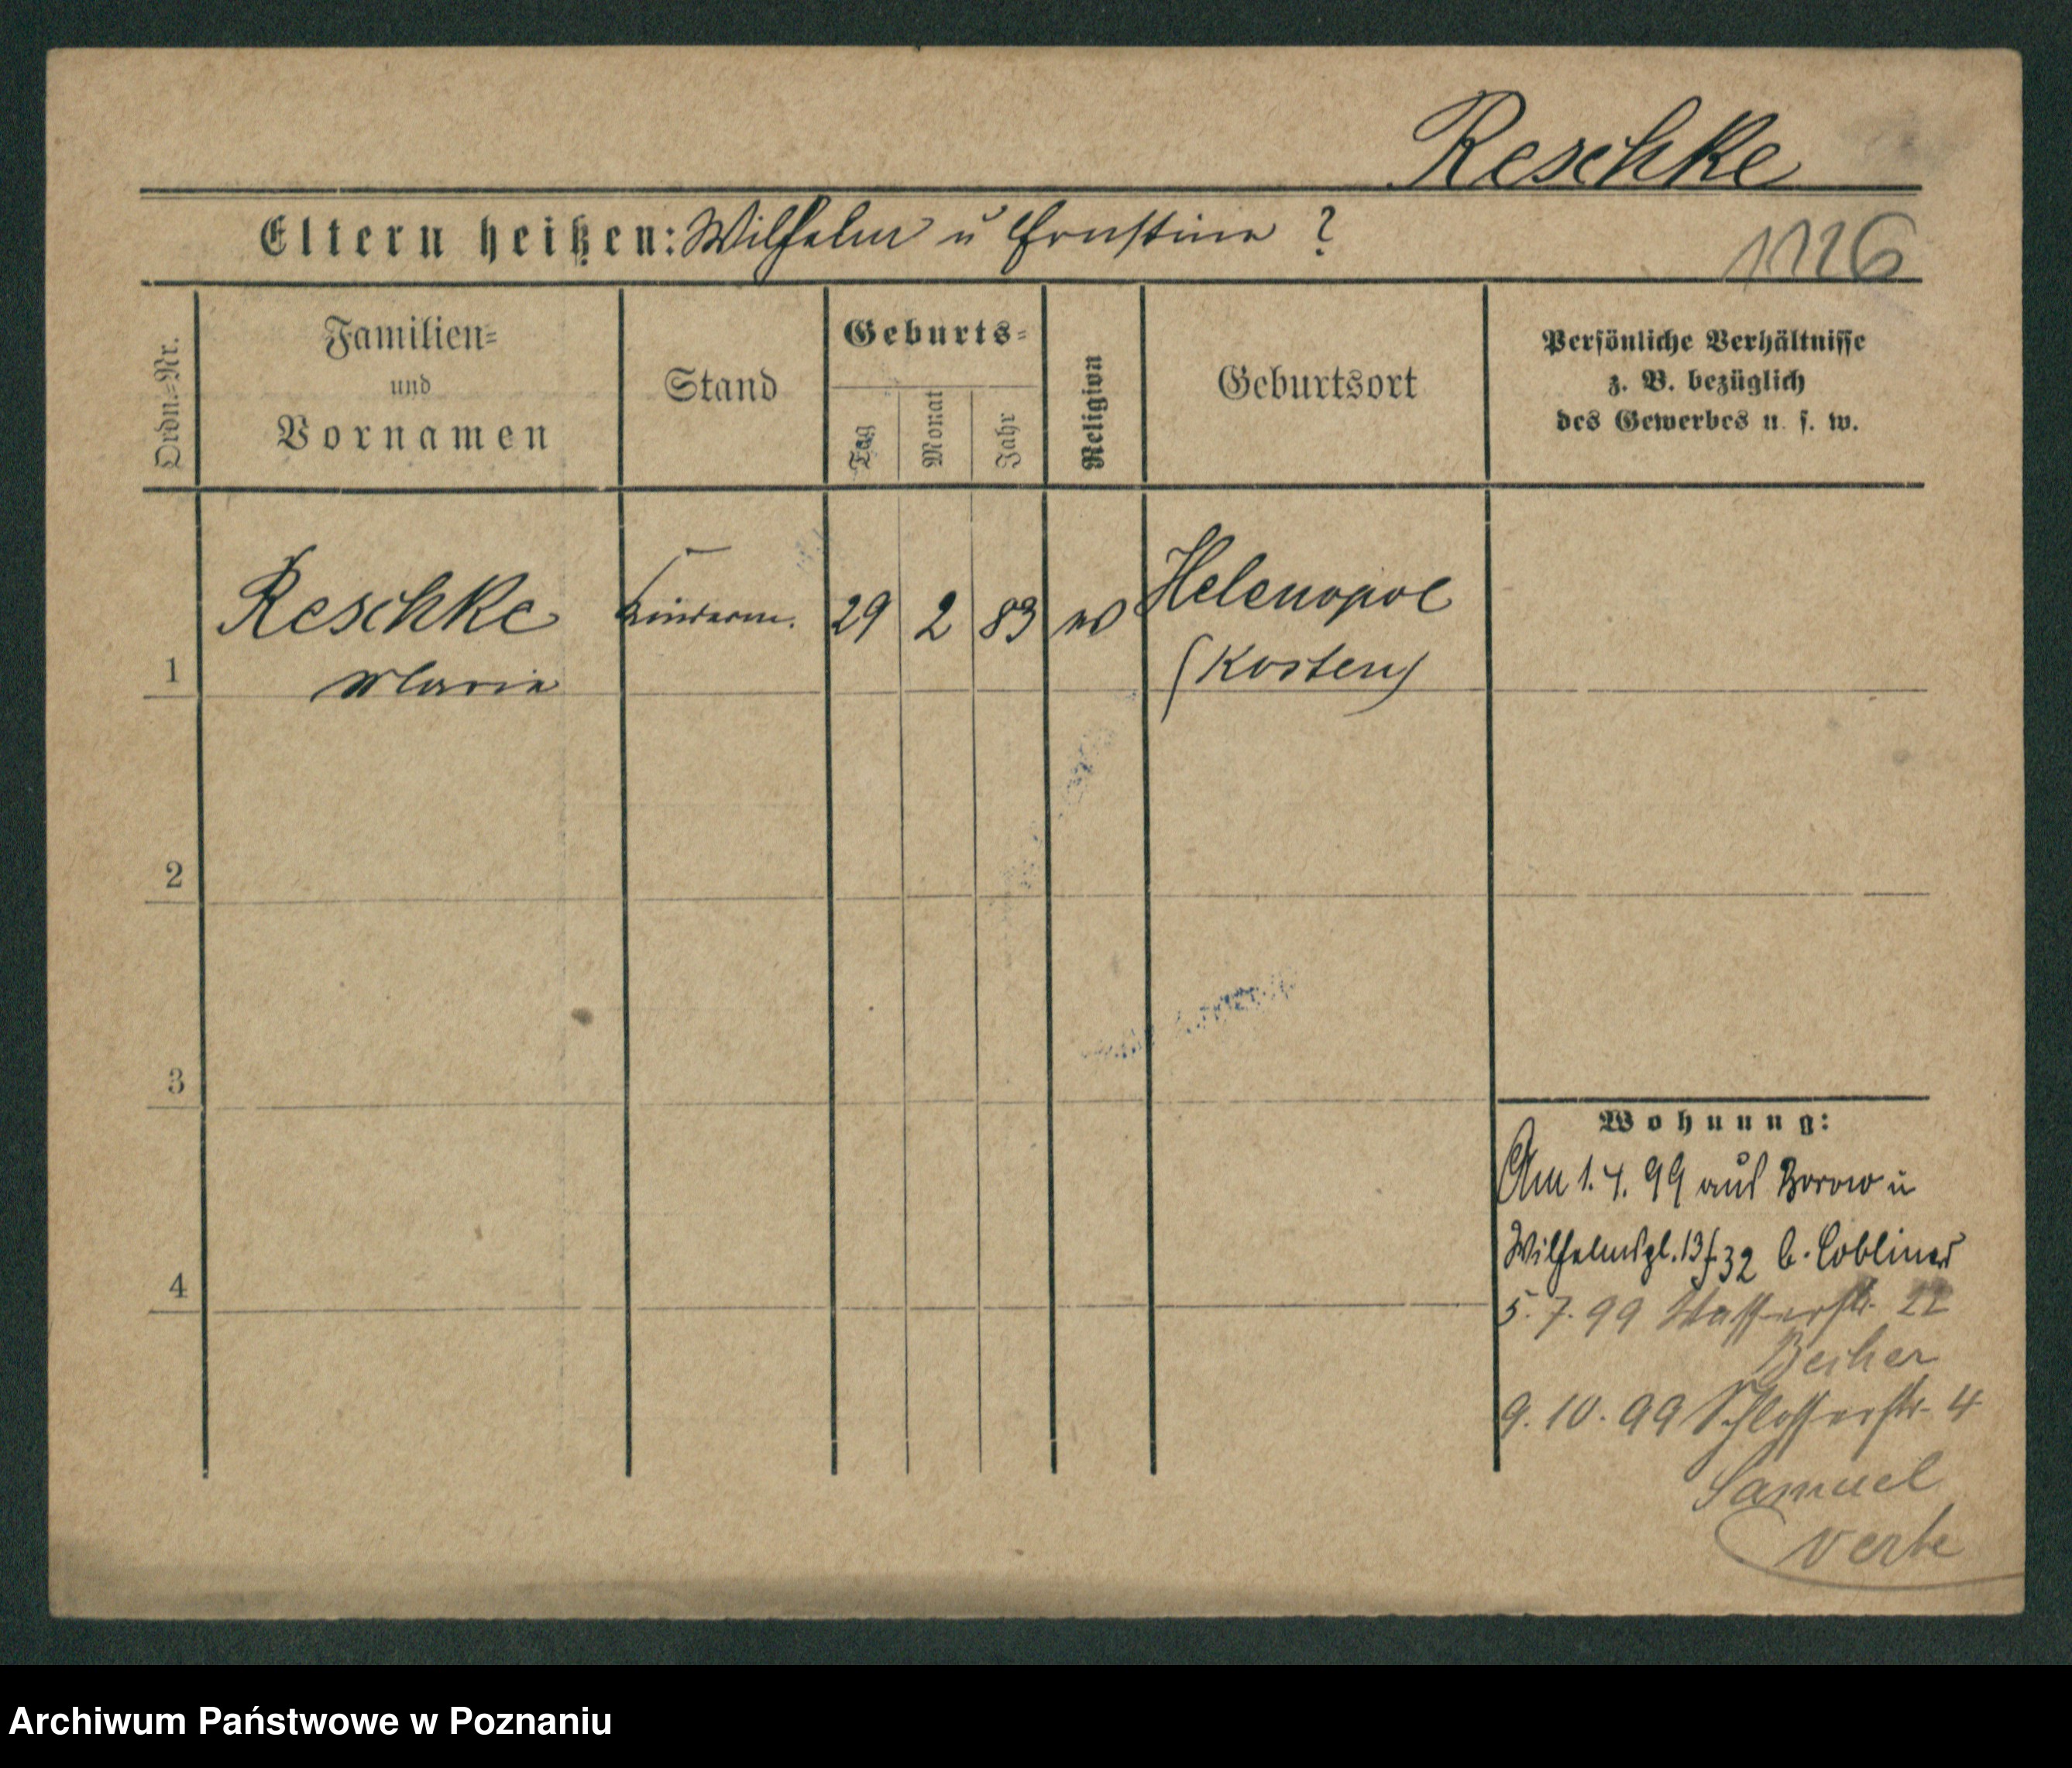 Reschke
Eltern heißen: Wilhelm u Ernstine ?
1126
Ordn.=Nr.
Familien=
und
Vornamen
Stand
Geburts=
Tag
Monat
Jahr
Religion
Geburtsort
Persönliche Verhältnisse
z. B. bezüglich
des Gewerbes u. s. w.
1
Reschke
Maria
Kinderm.
29
2
83
Helenopol
(Kosten)
2
3
4
Wohnung:
Am 1. 4. 99 aus Borow u
Wilhelmspl. 13/32 b. Cobliner
5. 7. 99 Wasserstr. 22
Becher
9. 10. 99 Schlosserstr. 4
Samuel
verte
Archiwum Państwowe w Poznaniu